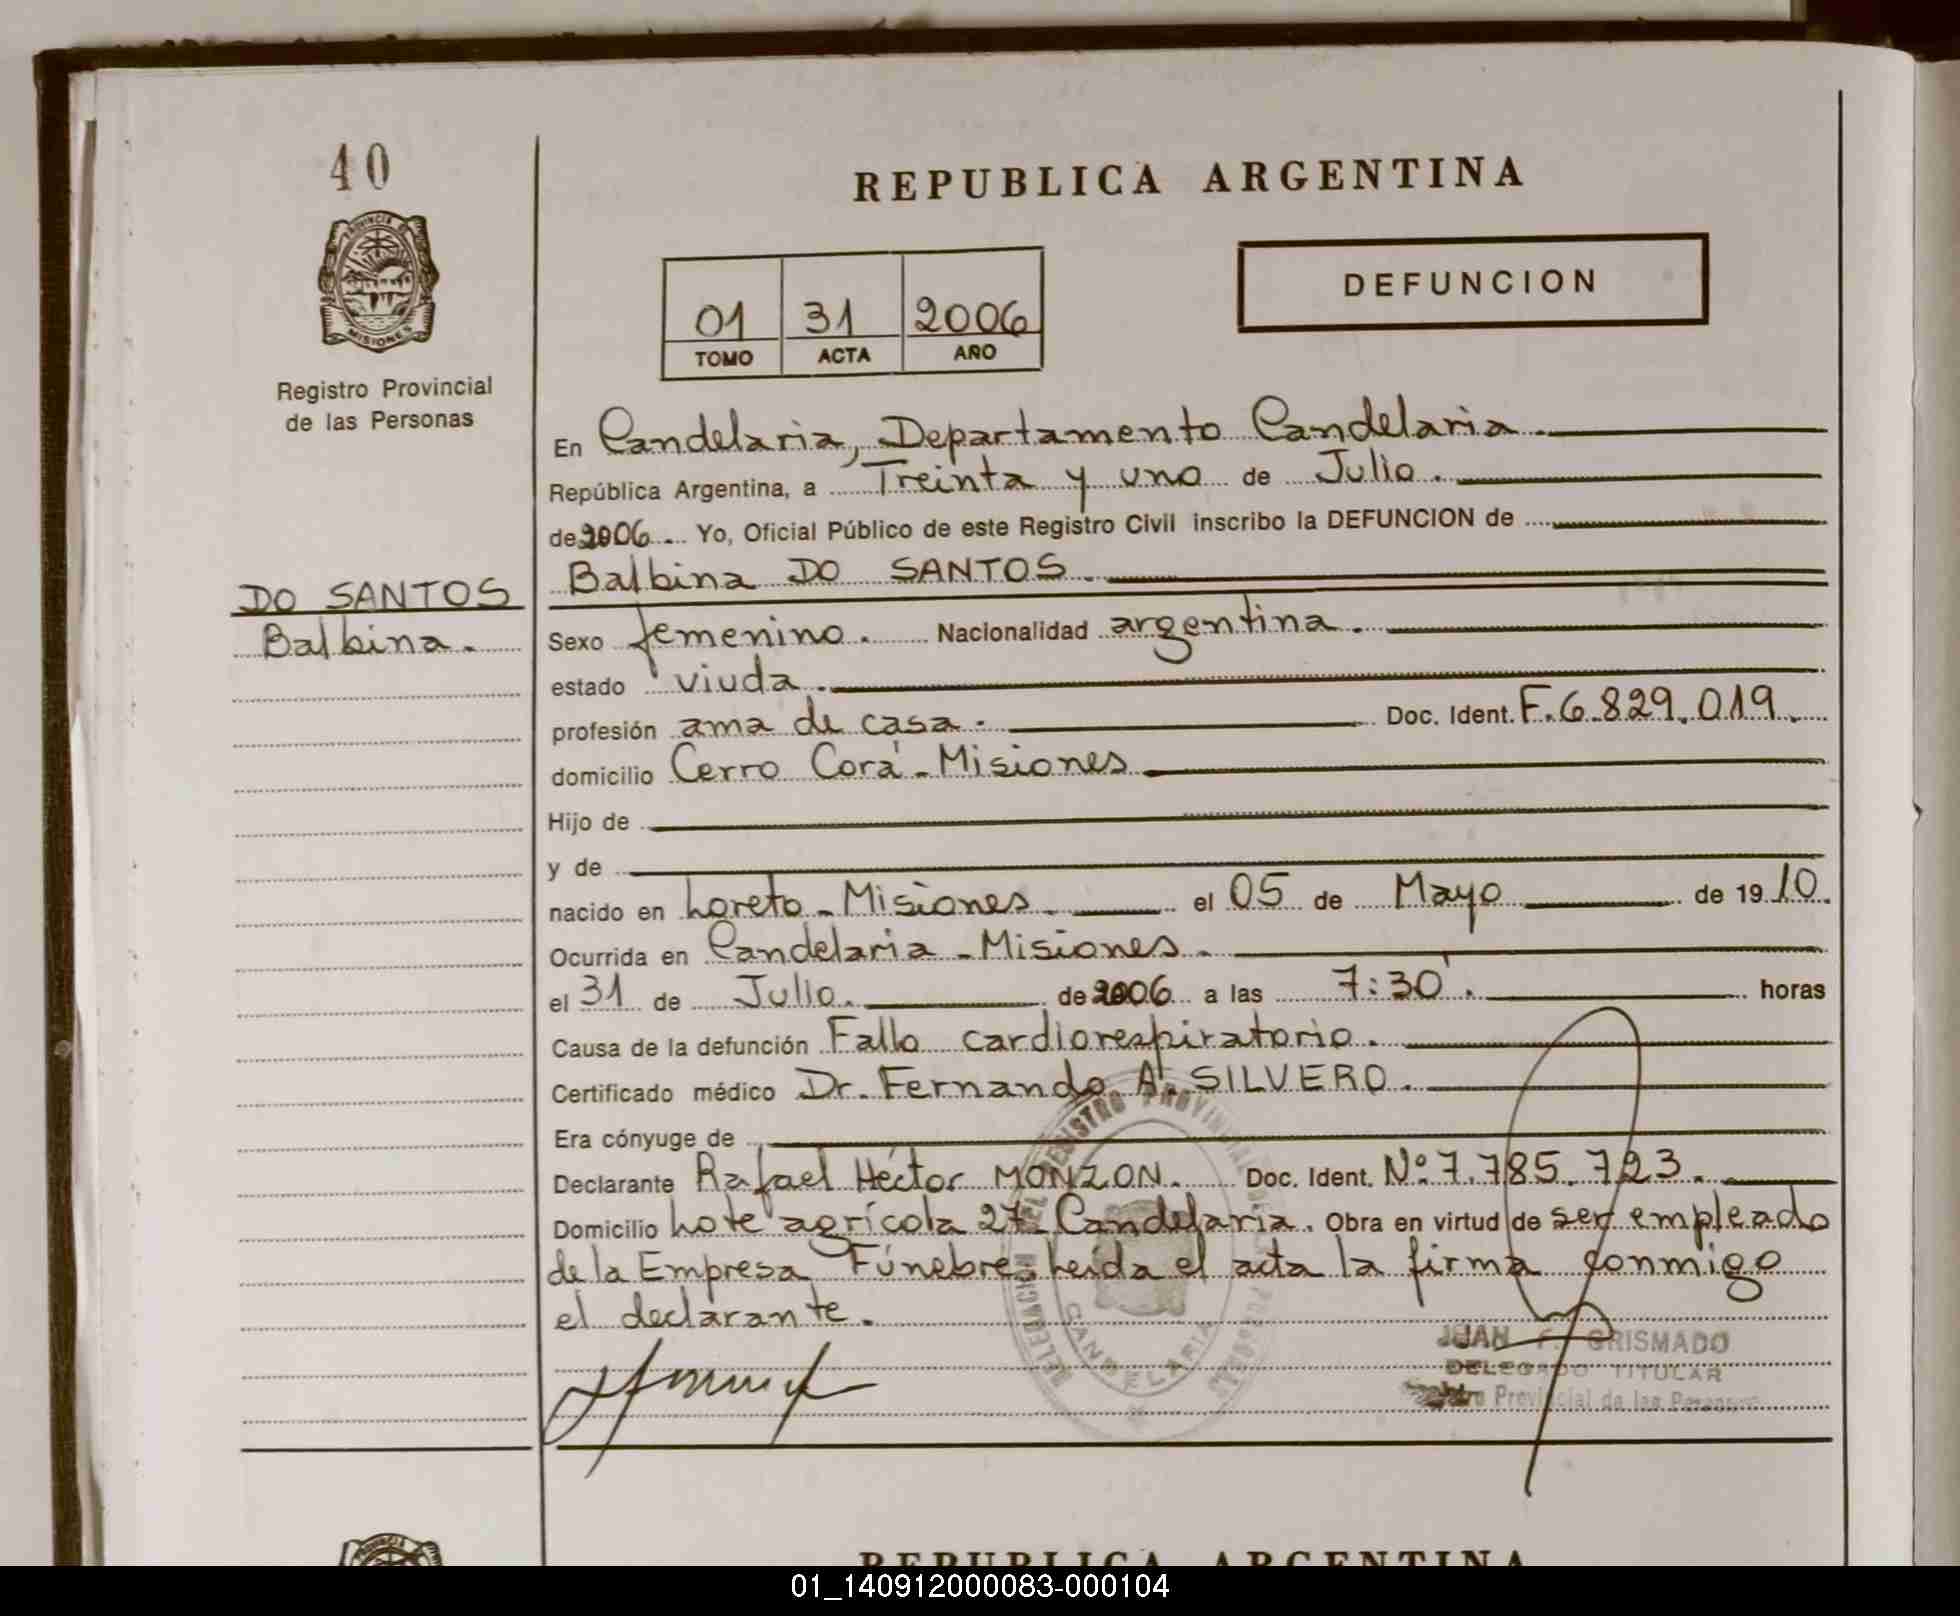 40
PROVINCIA DE
MISIONES
Registro Provincial
de las Personas
DO SANTOS
Balbina.
REPUBLICA ARGENTINA
01 31 2006
TOMO ACTA AÑO
DEFUNCION
En Candelaria, Departamento Candelaria.
República Argentina, a Treinta y uno de Julio.
de 2006. Yo, Oficial Público de este Registro Civil inscribo la DEFUNCION de
Balbina DO SANTOS.
Sexo femenino. Nacionalidad argentina.
estado viuda.
profesión ama de casa. Doc. Ident. F.6.829.019.
domicilio Cerro Corá - Misiones
Hijo de
y de
nacido en Loreto - Misiones. el 05 de Mayo de 1910.
Ocurrida en Candelaria - Misiones.
el 31 de Julio. de 2006 a las 7:30'. horas
Causa de la defunción Fallo cardiorespiratorio.
Certificado médico Dr. Fernando A. SILVERO.
Era cónyuge de
Declarante Rafael Héctor MONZON. Doc. Ident. Nº 7.785.723.
Domicilio Lote agrícola 27 - Candelaria. Obra en virtud de ser empleado
de la Empresa Fúnebre. Leída el acta la firma conmigo
el declarante.
DELEGACION DEL REGISTRO PROVINCIAL DE LAS PERSONAS
CANDELARIA
JUAN F. GRISMADO
DELEGADO TITULAR
Registro Provincial de las Personas
REPUBLICA ARGENTINA
01_140912000083-000104